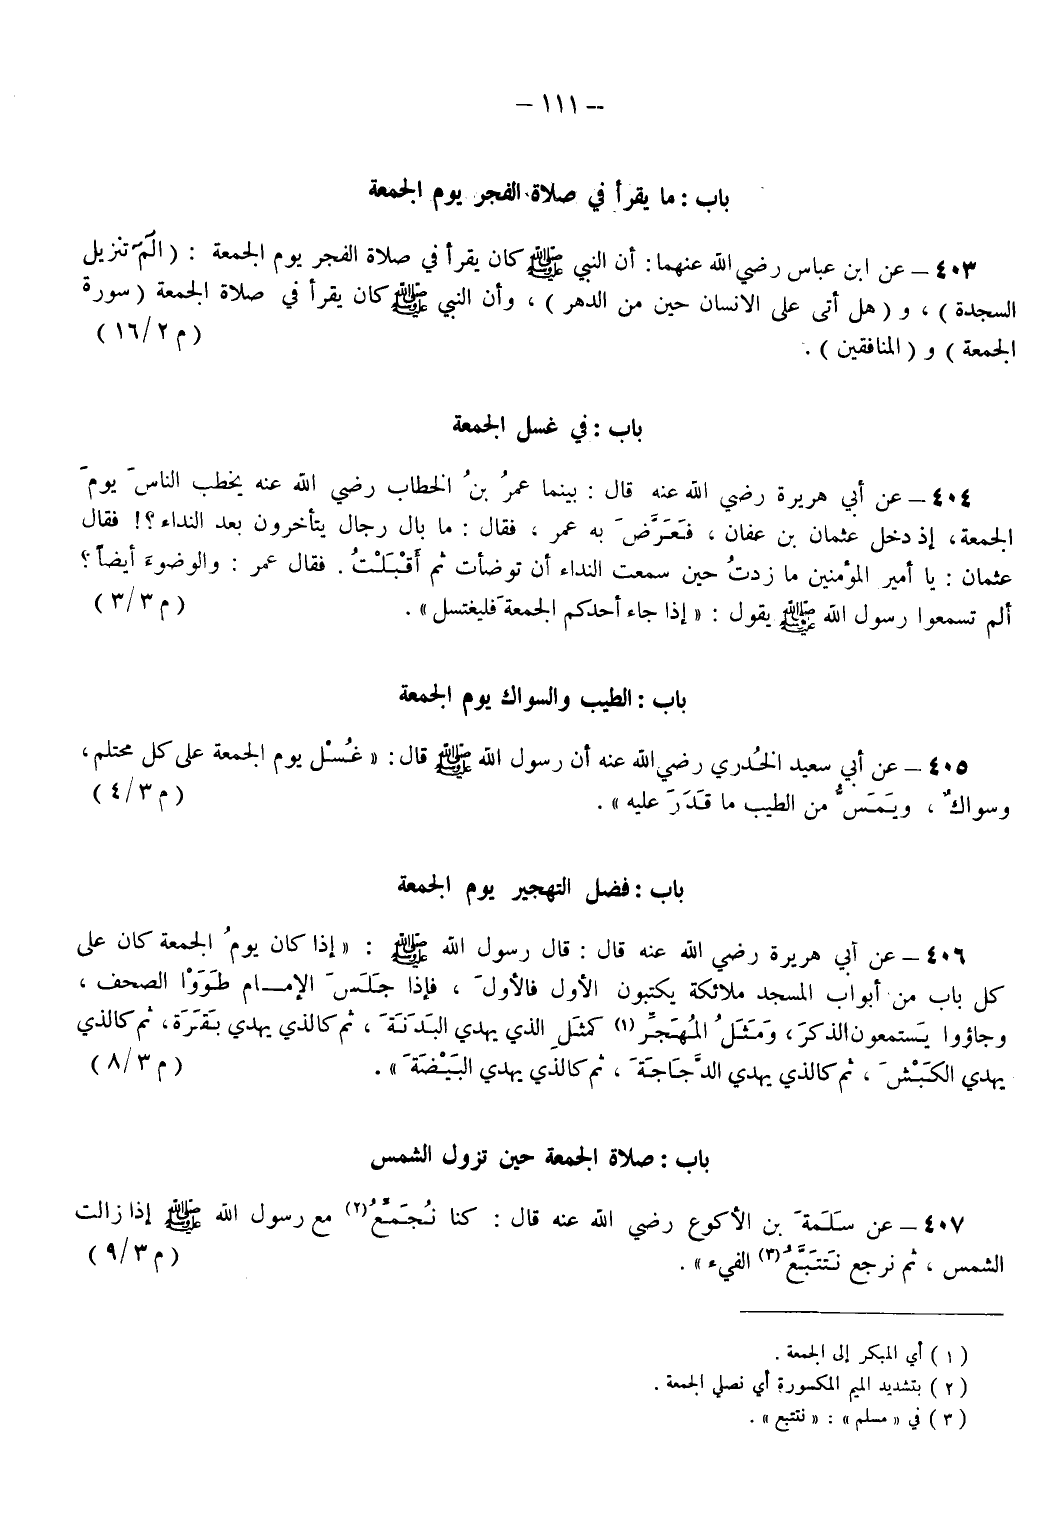 -- ١١١ –
باب : ما يقرأ في صلاة الفجر يوم الجمعة
٤٠٣ – عن ابن عباس رضي الله عنهما : أن النبي ﷺ كان يقرأ في صلاة الفجر يوم الجمعة : ( الٓمٓ تنزيل
السجدة ) ، و ( هل أتى على الانسان حين من الدهر ) ، وأن النبي ﷺ كان يقرأ في صلاة الجمعة ( سورة
الجمعة ) و ( المنافقين ) . ( م ٢/١٦ )
باب : في غسل الجمعة
٤٠٤ – عن أبي هريرة رضي الله عنه قال : بينما عمرُ بنُ الخطاب رضي الله عنه يخطب الناسَ يومَ
الجمعة ، إذ دخل عثمان بن عفان ، فَعَرَّضَ به عمر ، فقال : ما بال رجال يتأخرون بعد النداء ؟! فقال
عثمان : يا أمير المؤمنين ما زدتُ حين سمعت النداء أن توضأت ثم أَقْبَلْتُ . فقال عمر : والوضوءَ أيضاً ؟
ألم تسمعوا رسول الله ﷺ يقول : « إذا جاء أحدكم الجمعةَ فليغتسل » . ( م ٣/٣ )
باب : الطيب والسواك يوم الجمعة
٤٠٥ – عن أبي سعيد الخُدري رضي الله عنه أن رسول الله ﷺ قال : « غُسْل يوم الجمعة على كل محتلم ،
وسواكٌ ، ويَمَسُّ من الطيب ما قَدَرَ عليه » . ( م ٣/٤ )
باب : فضل التهجير يوم الجمعة
٤٠٦ – عن أبي هريرة رضي الله عنه قال : قال رسول الله ﷺ : « إذا كان يومُ الجمعة كان على
كل باب من أبواب المسجد ملائكة يكتبون الأول فالأولَ ، فإذا جَلَسَ الإمــام طَوَوْا الصحف ،
وجاؤوا يَستمعون الذكرَ ، وَمَثَلُ المُهَجِّرِ (١) كمثَلِ الذي يهدي البَدَنَةَ ، ثم كالذي يهدي بَقَرَة ، ثم كالذي
يهدي الكَبْشَ ، ثم كالذي يهدي الدَّجَاجَةَ ، ثم كالذي يهدي البَيْضَةَ » . ( م ٣/٨ )
باب : صلاة الجمعة حين تزول الشمس
٤٠٧ – عن سَلَمةَ بن الأكوع رضي الله عنه قال : كنا نُجَمِّعُ (٢) مع رسول الله ﷺ إذا زالت
الشمس ، ثم نرجع نَتَتَبَّعُ (٣) الفيء » . ( م ٣/٩ )
( ١ ) أي المبكر إلى الجمعة .
( ٢ ) بتشديد الميم المكسورة أي نصلي الجمعة .
( ٣ ) في « مسلم » : « نتتبع » .